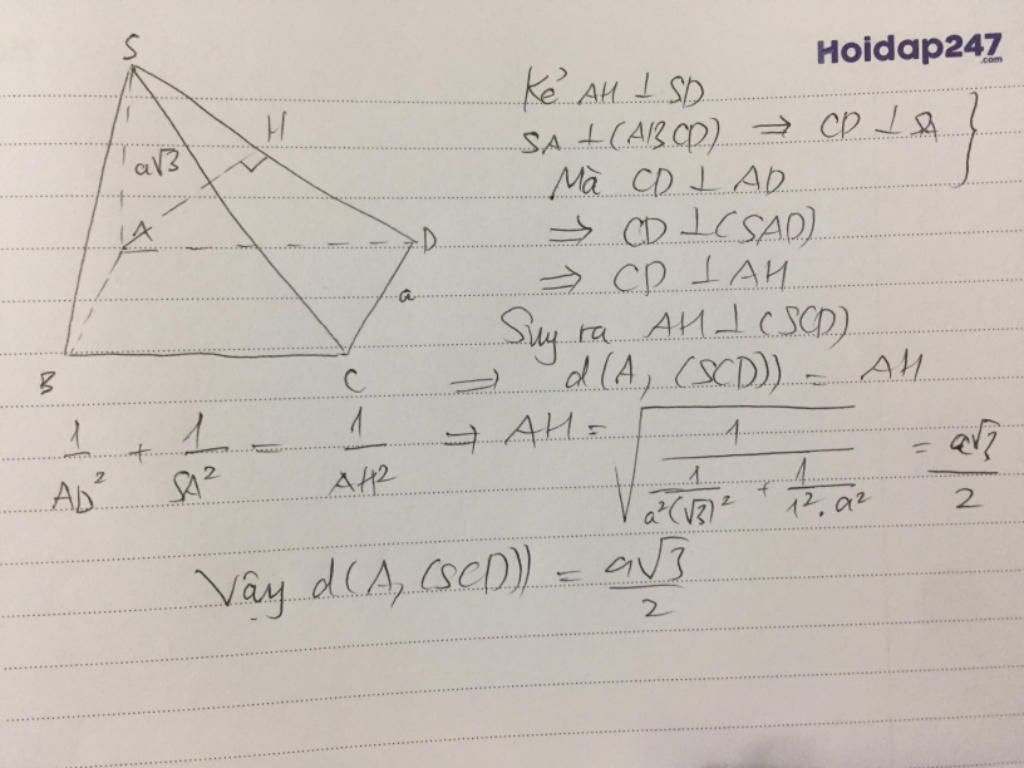 Hoidap247
.com
S
H
a√3
A
D
a
B
C
Kẻ AH ⊥ SD
SA ⊥ (ABCD) ⇒ CD ⊥ SA }
Mà CD ⊥ AD
⇒ CD ⊥ (SAD)
⇒ CD ⊥ AH
Suy ra AH ⊥ (SCD)
⇒ d(A, (SCD)) = AH
1/AD² + 1/SA² = 1/AH² ⇒ AH = √(1/(1/(a²(√3)²) + 1/(1².a²))) = a√3/2
Vậy d(A, (SCD)) = a√3/2